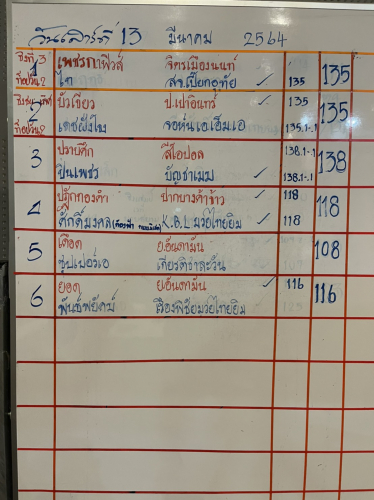 วันเสาร์ที่ 13 มีนาคม 2564
1 เพชรกาฬิวส์ จิตรเมืองนนท์ 135
ไก่ สจ.เปี๊ยกอุทัย ✓ 135
2 บัวเขียว ป.เปาอินทร์ ✓ 135 135
เดชฝั่งโขง จอหน์เอ.เอ็ม.เอ 135.1-.1
3 ปราบศึก สีโอปอล 138.1-.1 138
ปืนเพชร บัญชาเมฆ ✓ 138.1-.1
4 ปฏักทองคำ ปากบางคำข้าว ✓ 118 118
ศักดิ์มงคล K.B.L มวยไทยยิม ✓ 118
5 เดือด ย.อันดามัน 108
ซุปเฟอร์เอ เกียรติจำละวัน
6 ยอด ย.อันดามัน ✓ 116 116
พันธ์พยัคฆ์ เรืองพิชัยมวยไทยยิม